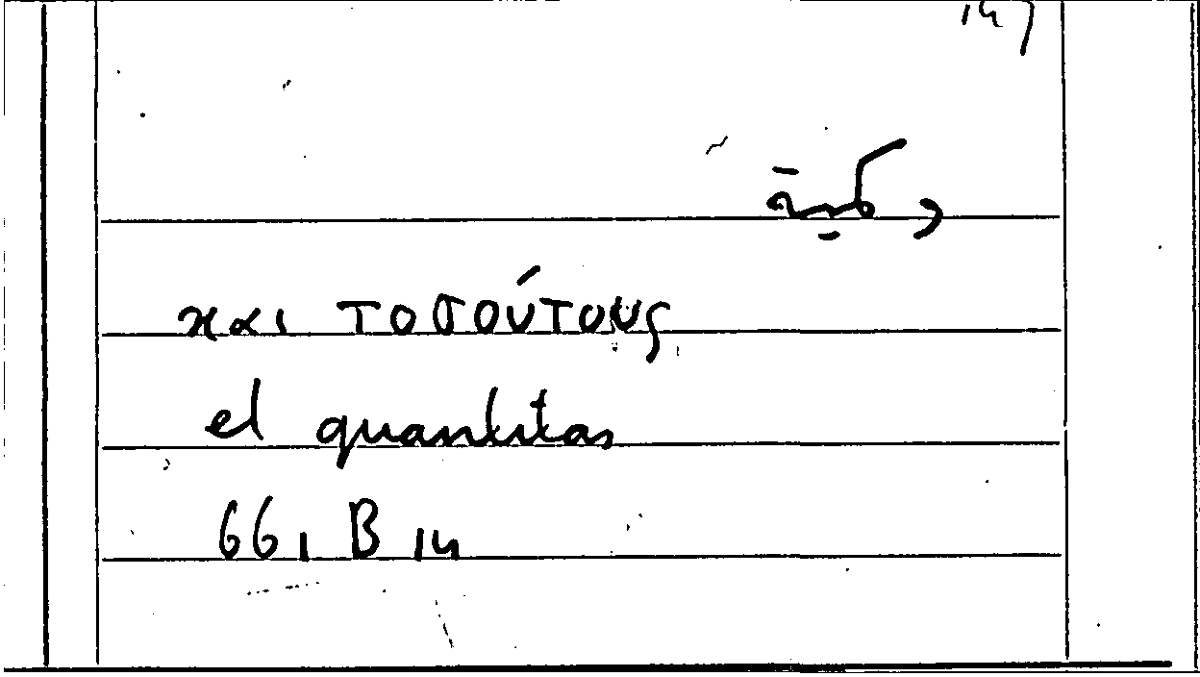 وكمية
και τοσούτους
et quantitas
661 B 14